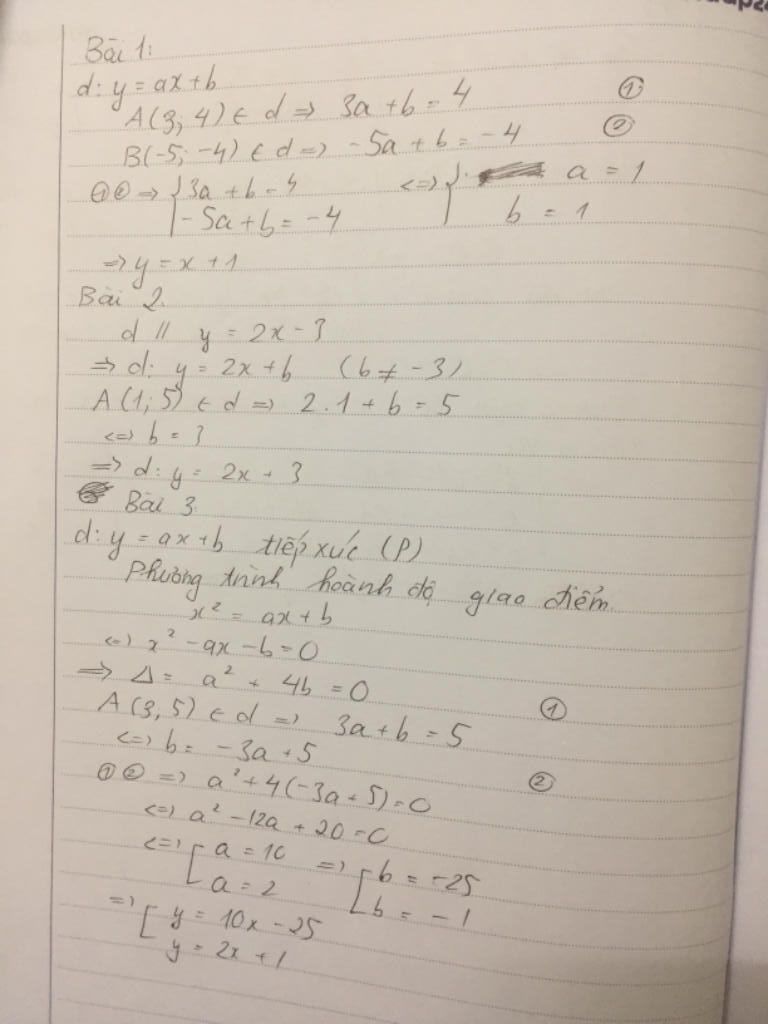 Bài 1:
d: y = ax + b
A(3; 4) ∈ d => 3a + b = 4 ①
B(-5; -4) ∈ d => -5a + b = -4 ②
① ② => { 3a + b = 4 <=> { a = 1
- 5a + b = -4 b = 1
=> y = x + 1
Bài 2.
d // y = 2x - 3
=> d: y = 2x + b (b ≠ -3)
A(1; 5) ∈ d => 2.1 + b = 5
<=> b = 3
=> d: y = 2x + 3
Bài 3.
d: y = ax + b tiếp xúc (P)
Phương trình hoành độ giao điểm
x² = ax + b
<=> x² - ax - b = 0
=> Δ = a² + 4b = 0 ①
A(3, 5) ∈ d => 3a + b = 5
<=> b = -3a + 5 ②
① ② => a² + 4(-3a + 5) = 0
<=> a² - 12a + 20 = 0
<=> [ a = 10 => [ b = -25
a = 2 b = -1
=> [ y = 10x - 25
y = 2x + 1